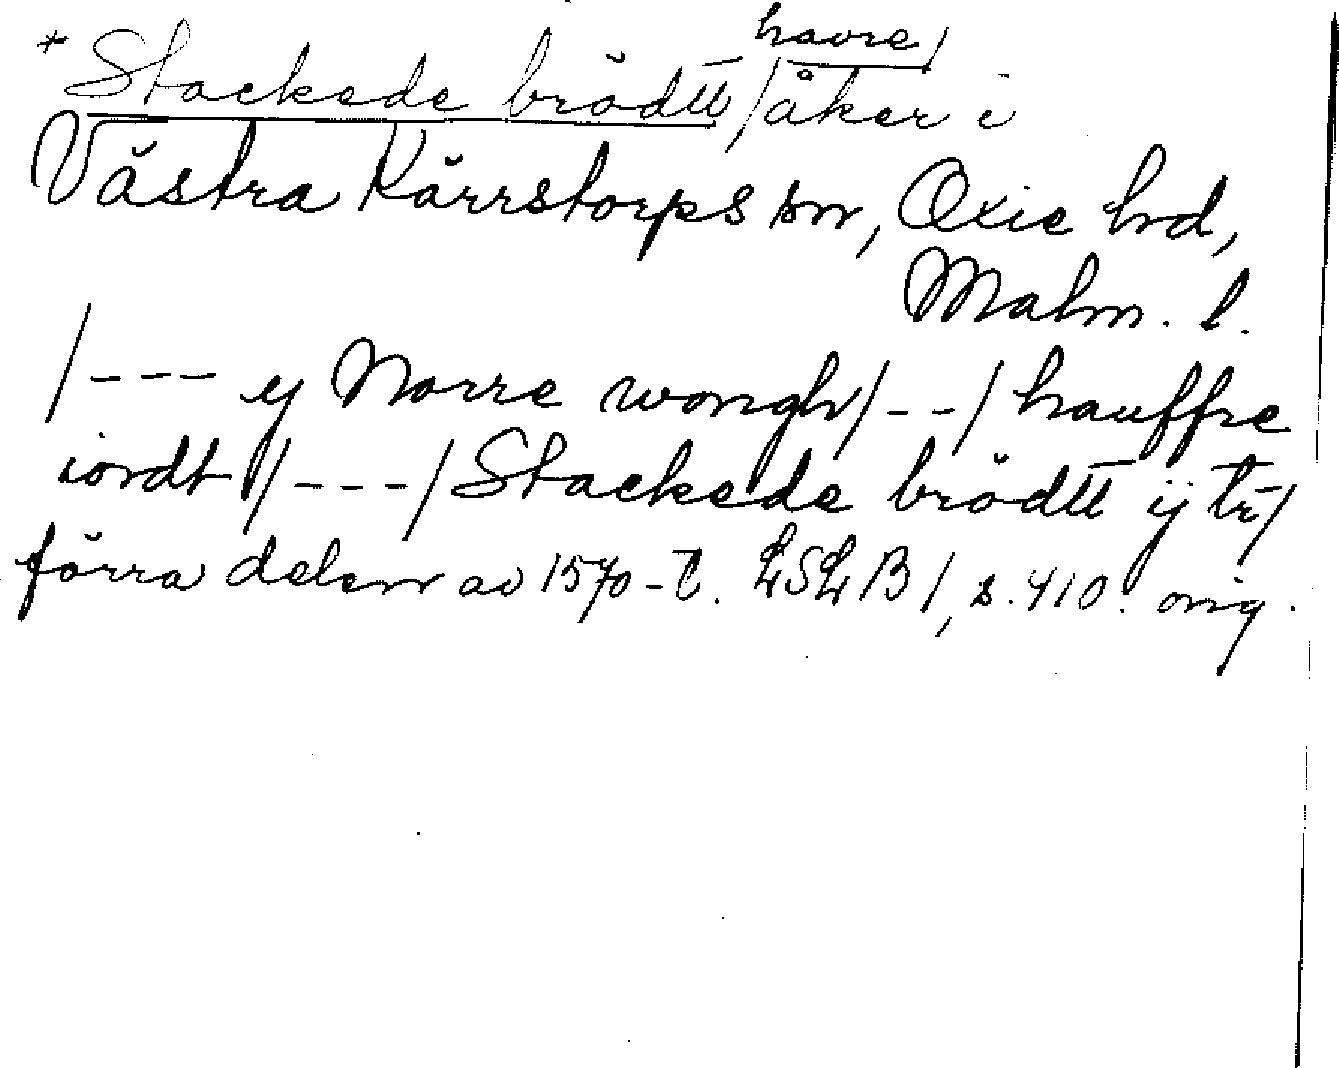 havre/
* Stackede brödtt /åker i
Västra Kärrstorps sn, Oxie hd,
Malm. l.
/--- y Norre wongh/--/ hauffre
iordt /---/ Stackede brödtt ij tr/
förra delen av 1570-t. LSLB/, s. 410. orig.